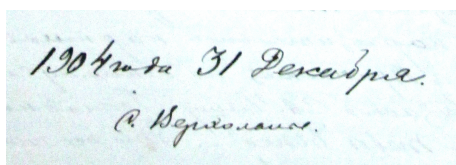 1904 года 31 Декабря.
с. Верхоланье.